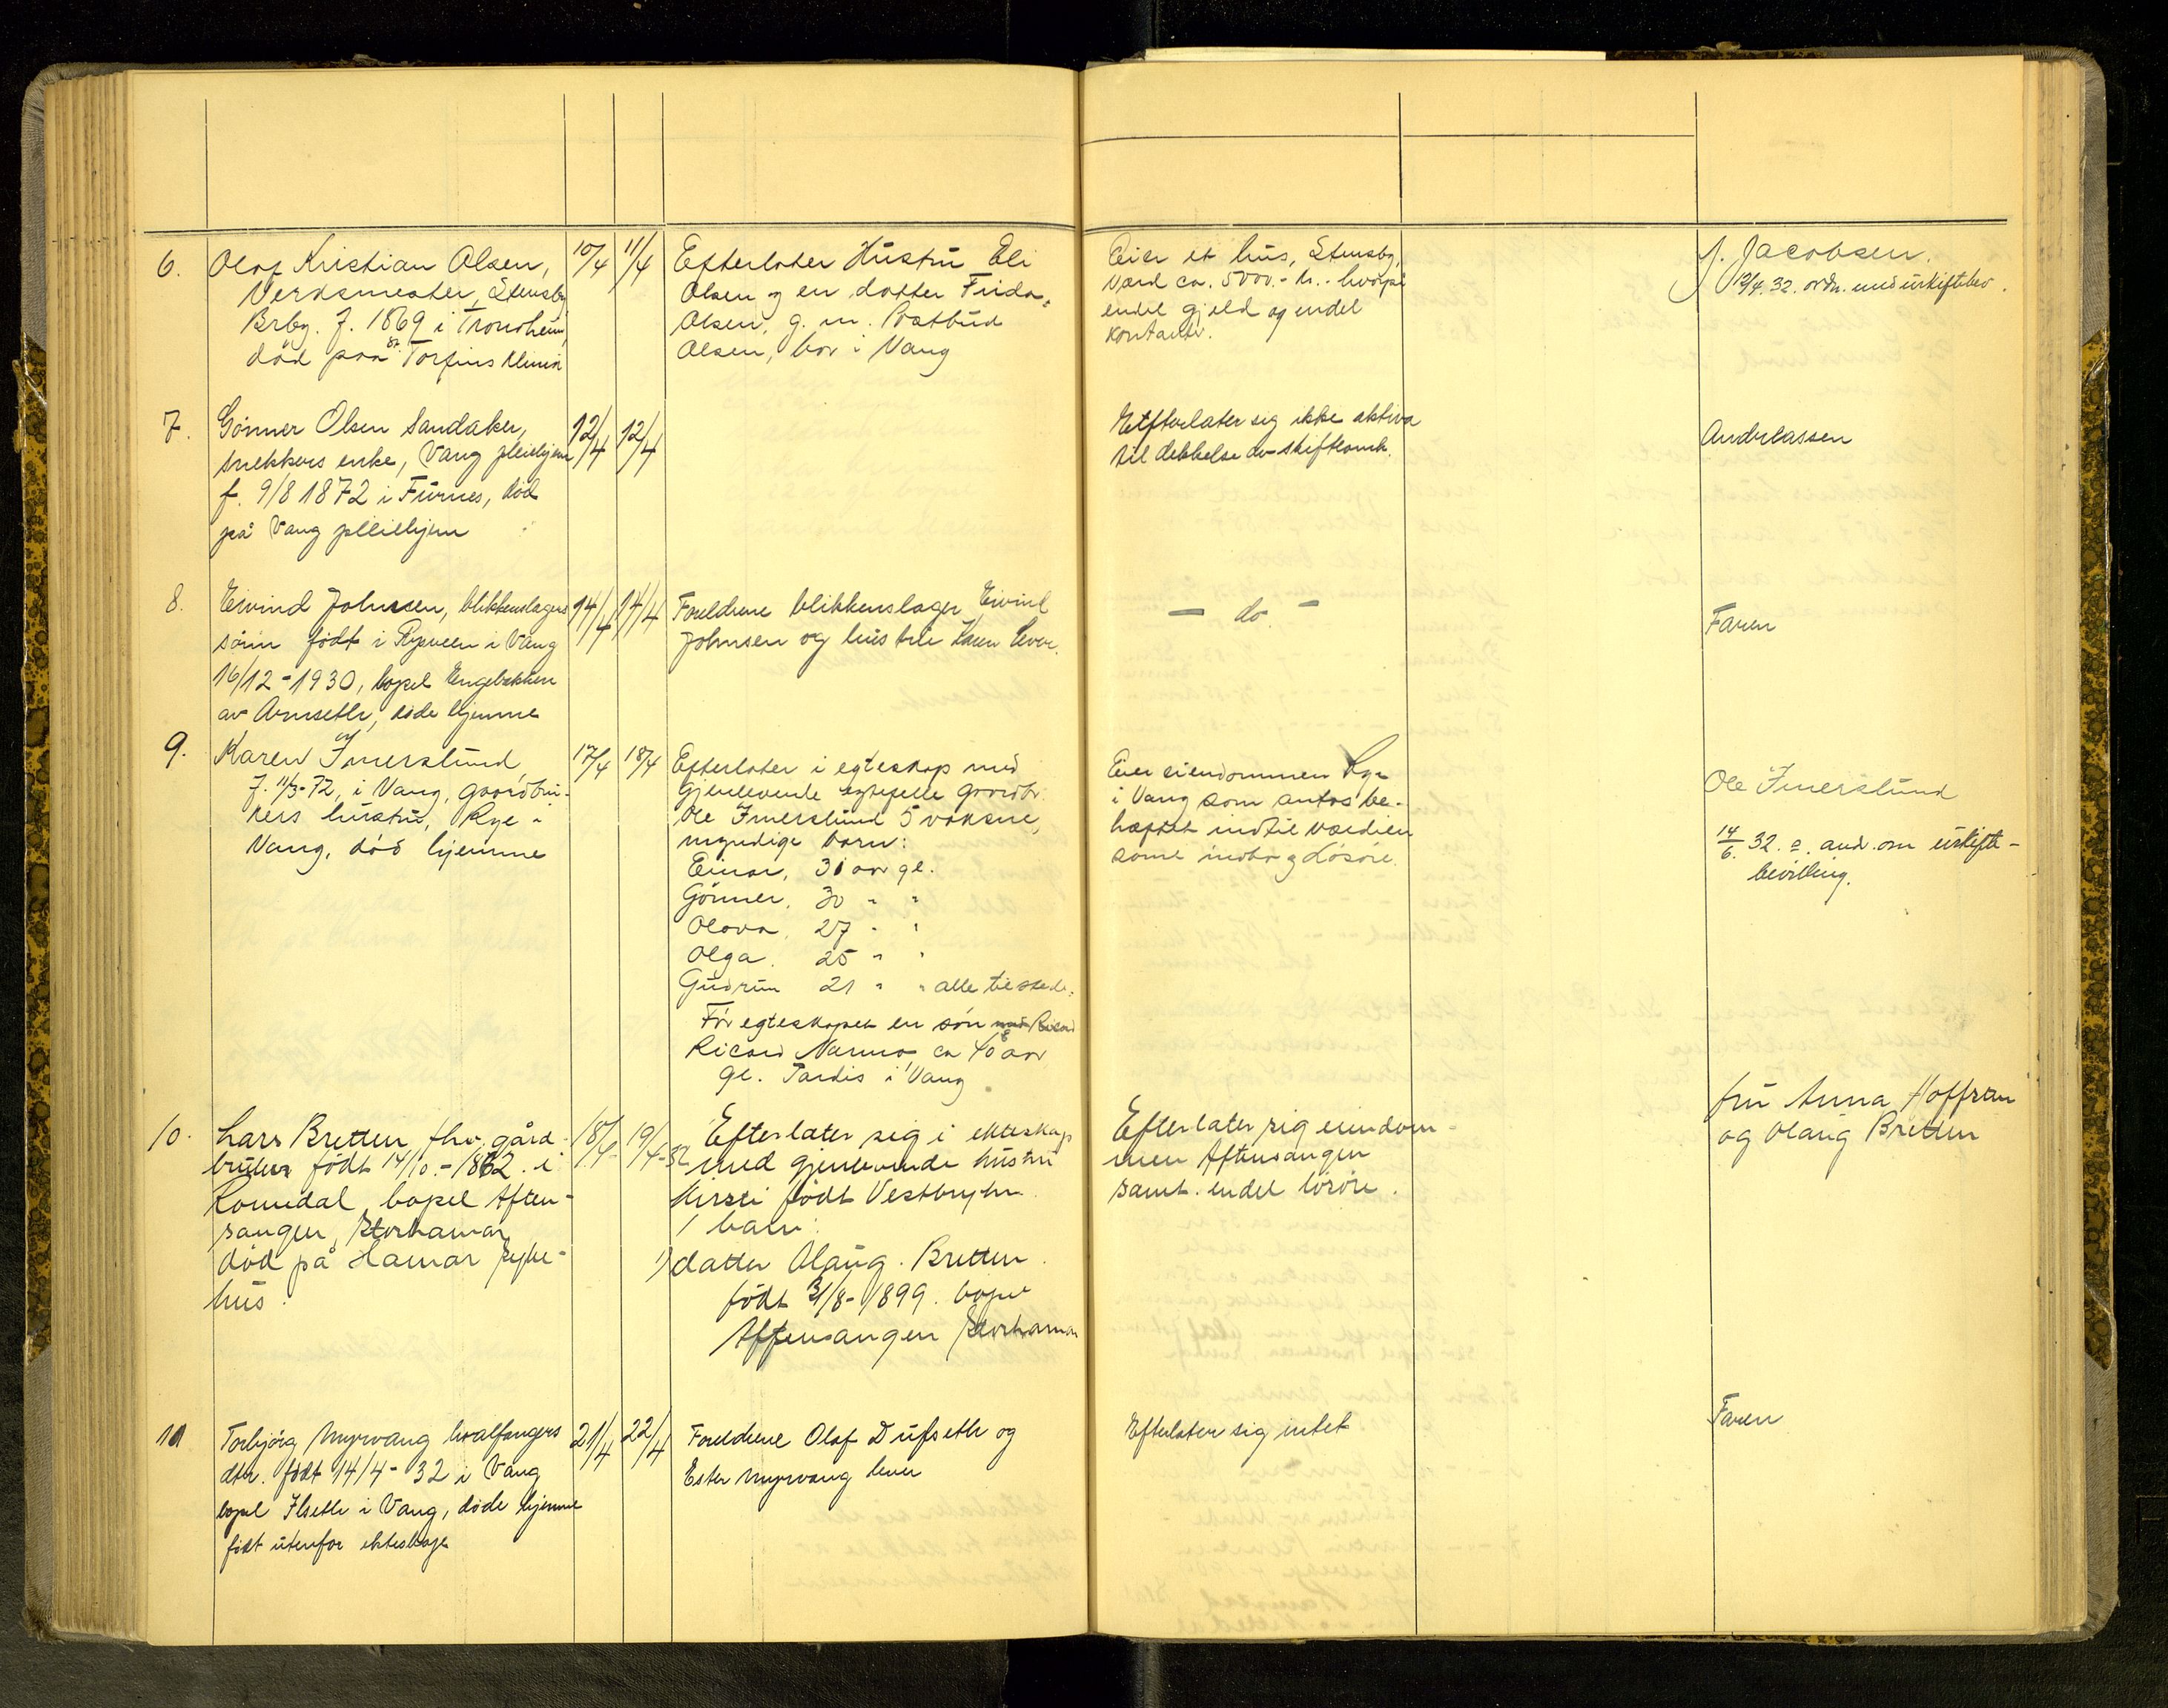 6.
Olaf Kristian Olsen,
Verksmester, Stensby
Brbg. f. 1869 i Trondheim,
død paa St. Torfins Klinik
10/4
11/4
Efterlater Hustru Eli
Olsen og en datter Frida
Olsen, g. m. Postbud
Olsen, bor i Vang
Eier et hus, Stensby,
Værd ca. 5000.- kr. - hvorpå
endel gjeld og endel
kontanter.
J. Jacobsen.
12/4. 32. ordn. med uskiftebev.
7.
Gunner Olsen Sandaker,
snekkers enke, Vang pleiehjem
f. 9/8 1872 i Furnes, död
på Vang pleiehjem
12/4
12/4
Etfterlater sig ikke aktiva
til dekkelse av skifteomk.
Andreassen
8.
Eivind Johnsen, blikkenslagers
sönn födt i Rypveen i Vang
16/12-1930, bopel Engebakken
av Arnseth, döde hjemme
14/4
14/4
Foreldrene blikkenslager Eivind
Johnsen og hustru Karen lever.
- do. -
Faren
9.
Karen Imerslund,
f. 11/3-72, i Vang, gaardbru-
kers hustru, Rye i
Vang, død hjemme
17/4
18/4
Efterlater i egteskap med
gjenlevende egtefelle gaardbr.
Ole Imerslund 5 voksne,
myndige barn:
Einar, 31 aar gl.
Gunner, 30 " "
Olava, 27 " "
Olga. 25 " "
Gudrun 21 " " alle tilstede.
Før egteskapet en søn med Ricard
Ricard Narmo, ca 40 aar
gl. Pardis i Vang.
Eier eiendommen Rye
i Vang som antas be-
heftet indtil værdien
samt indbo og Løsøre.
Ole Imerslund
14/6. 32. e. and. om uskifte-
bevilling.
10.
Lars Bretten fhv. gård-
bruker födt 14/10.-1862. i
Romedal, bopel Aften-
sangen, Storhamar
död på Hamar syke-
hus.
18/4-
19/4-32
Efterlater sig i ekteskap
med gjenlevende hustru
Kirsti födt Vestby
1 barn:
1) datter Olaug. Bretten.
födt 31/8-1899. bopel
Aftensangen Storhamar
Efterlater sig eiendom-
men Aftensangen
samt. endel lösöre.
fru Anna Hoffran
og Olaug Bretten
11
Torbjörg Myrvang hvalfangers
dtr. födt 14/4-32 i Vang
bopel Ilseth i Vang, döde hjemme
födt utenfor ekteskap
21/4
22/4
Foreldrene Olaf Dufseth og
Ester Myrvang lever
Efterlater sig intet
Faren